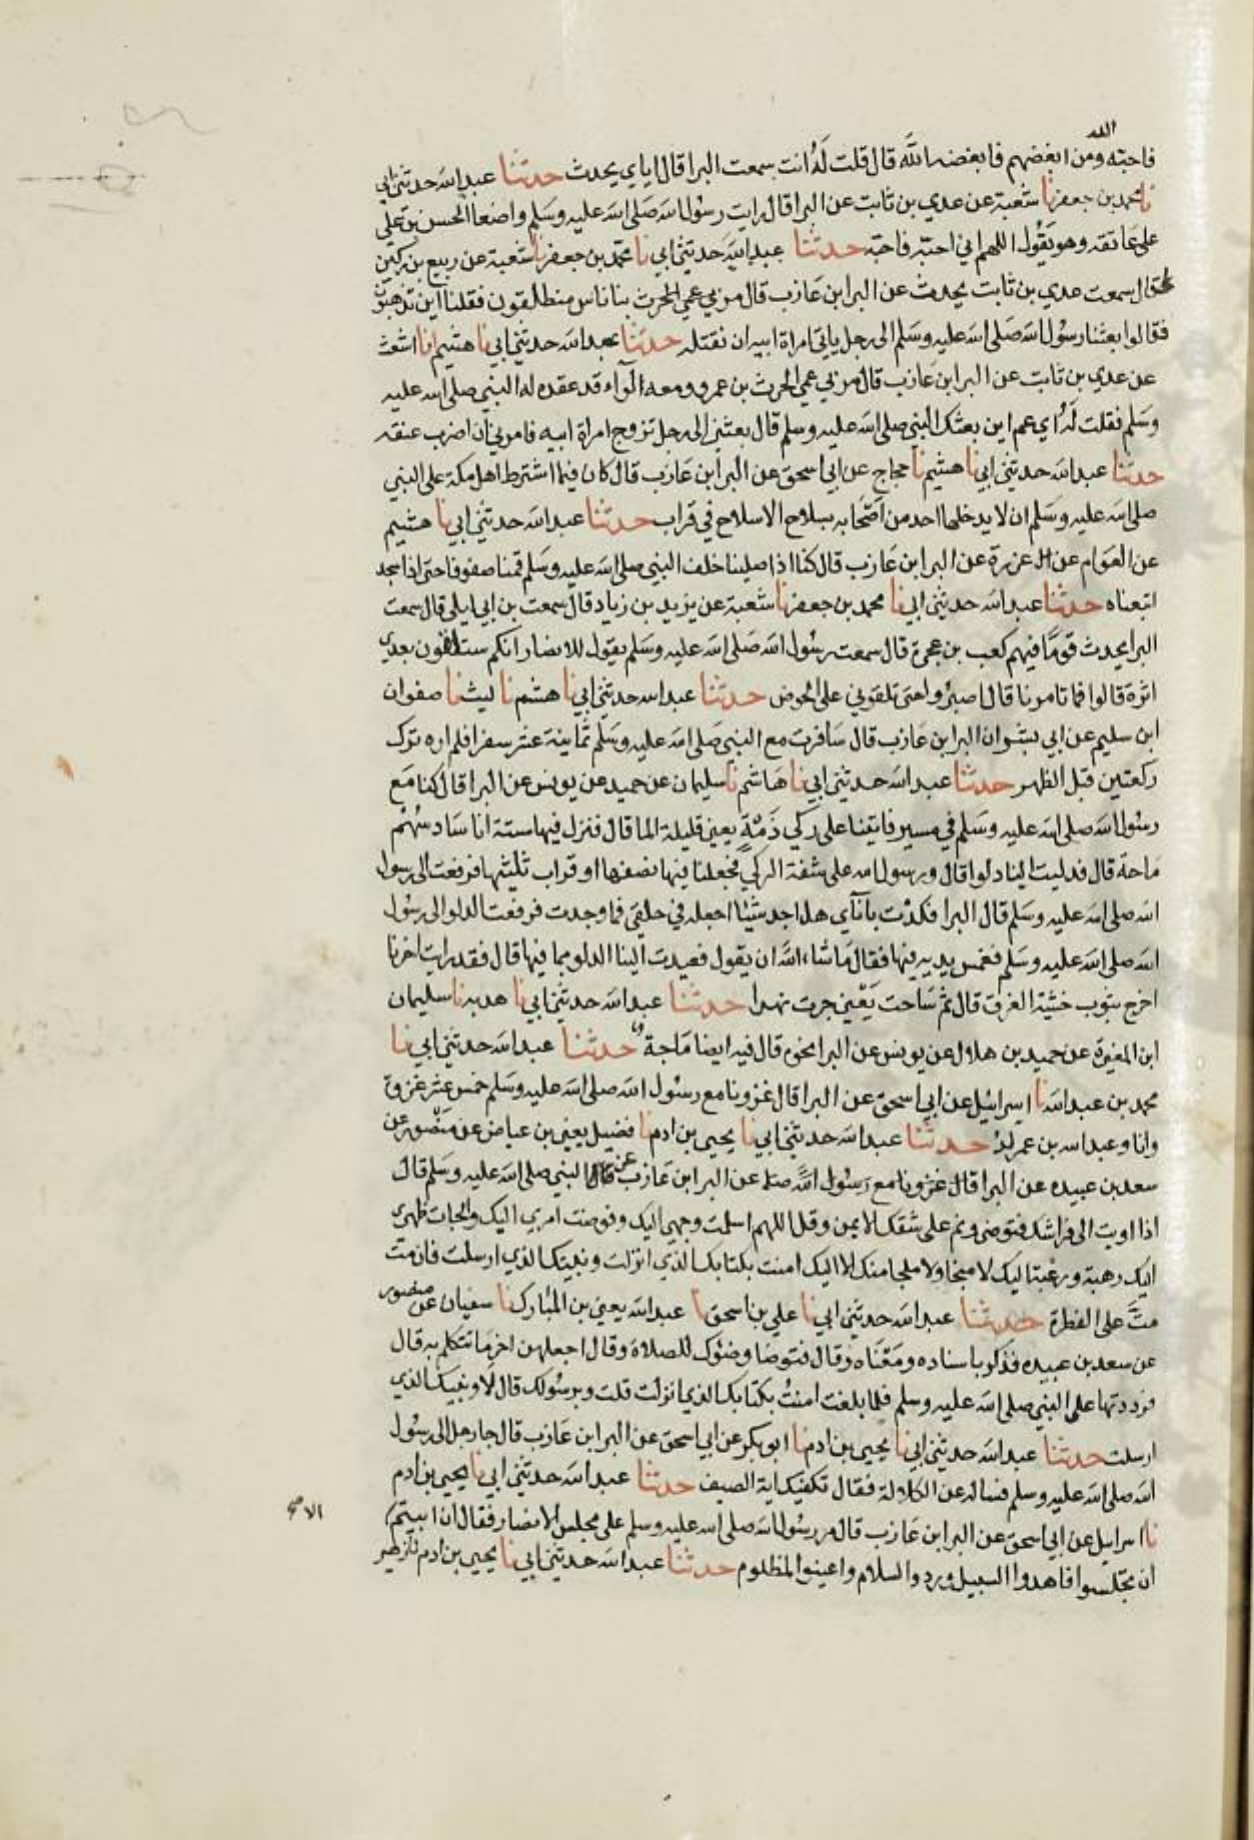 الله
فاحبه ومن ابغضهم فابغضه الله قال قلت له انت سمعت البرا قال اياي يحدث حدثنا عبد الله حدثني ابي
نا محمد بن جعفر نا شعبة عن عدي بن ثابت عن البرا قال رايت رسول الله صلى الله عليه وسلم واضعا الحسن بن علي
على عاتقه وهو يقول اللهم اني احبه فاحبه حدثنا عبد الله حدثني ابي نا محمد بن جعفر نا شعبة عن ربيع بن ركين
قال سمعت عدي بن ثابت يحدث عن البرا بن عازب قال مر بي عمي الحرث بنا ناس منطلقون فقلنا اين تذهبون
فقالوا بعثنا رسول الله صلى الله عليه وسلم الى رجل ياتي امراة ابيه ان نقتله حدثنا عبد الله حدثني ابي نا هشيم انا اشعث
عن عدي بن ثابت عن البرا بن عازب قال مر بي عمي الحرث بن عمرو ومعه الوآء قد عقده له النبي صلى الله عليه
وسلم فقلت له اي عم اين بعثك النبي صلى الله عليه وسلم قال بعثني الى رجل تزوج امراة ابيه فامرني ان اضرب عنقه
حدثنا عبد الله حدثني ابي نا هشيم نا حجاج عن ابي اسحق عن البرا بن عازب قال كان فيما اشترط اهل مكة على النبي
صلى الله عليه وسلم ان لا يدخلها احد من اصحابه بسلاح الا سلاح في قراب حدثنا عبد الله حدثني ابي نا هشيم
عن العوام عن عزرة عن البرا بن عازب قال كنا اذا صلينا خلف النبي صلى الله عليه وسلم قمنا صفوفا حتى اذا سجد
اتبعناه حدثنا عبد الله حدثني ابي نا محمد بن جعفر نا شعبة عن يزيد بن زياد قال سمعت بن ابي ليلى قال سمعت
البرا يحدث قوما فيهم كعب بن عجرة قال سمعت رسول الله صلى الله عليه وسلم يقول للانصار انكم ستلقون بعدي
اثرة قالوا فما تامرنا قال اصبروا حتى تلقوني على الحوض حدثنا عبد الله حدثني ابي نا هشم نا ليث نا صفوان
ابن سليم عن ابي بسرة ان البرا بن عازب قال سافرت مع النبي صلى الله عليه وسلم ثمانية عشر سفرا فلم اره ترك
ركعتين قبل الظهر حدثنا عبد الله حدثني ابي نا هاشم نا سليمان عن حميد عن يونس عن البرا قال كنا مع
رسول الله صلى الله عليه وسلم في مسير فاتينا على ركي ذمة يعني قليلة الما قال فنزل فيها ستة انا سادسهم
ماحة قال فدليت الينا دلوا قال ورسول الله على شفة الركي فجعلنا فيها نصفها او قراب ثلثيها فرفعت الى رسول
الله صلى الله عليه وسلم قال البرا فكدت بانآي هل اجد شيئا اجعله في حلقي فما وجدت فرفعت الدلو الى رسول
الله صلى الله عليه وسلم فغمس يديه فيها فقال ما شاء الله ان يقول فعيدت الينا الدلو بما فيها قال فقد رايت اخرنا
اخرج بثوب خشية الغرق قال ثم ساحت يعني جرت نهرا حدثنا عبد الله حدثني ابي نا هدبه نا سليمان
ابن المغيرة عن حميد بن هلال عن يونس عن البرا نحوه قال فيه ايضا ماجة حدثنا عبد الله حدثني ابي نا
محمد بن عبد الله نا اسرائيل عن ابي اسحق عن البرا قال غزونا مع رسول الله صلى الله عليه وسلم خمس عشر غزوة
وانا وعبد الله بن عمر لدة حدثنا عبد الله حدثني ابي نا يحيى بن ادم نا فضيل يعني بن عياض عن منصور عن
سعد بن عبيده عن البرا قال غزونا مع رسول الله صلى عن البرا بن عازب عن قال النبي صلى الله عليه وسلم قال
اذا اويت الى فراشك فتوضى ونم على شقك الايمن وقل اللهم اسلمت وجهي اليك وفوضت امري اليك والجات ظهري
اليك رهبة ورغبة اليك لا منجا ولا ملجا منك الا اليك امنت بكتابك الذي انزلت ونبيك الذي ارسلت فان مت
مت على الفطرة حدثنا عبد الله حدثني ابي نا علي بن اسحق نا عبد الله يعني بن المبارك نا سفيان عن منصور
عن سعد بن عبيده فذكر باسناده ومعناه وقال فتوضا وضوك للصلاة وقال اجعلهن اخر ما تتكلم به قال
فرددتها على النبي صلى الله عليه وسلم فلما بلغت امنت بكتابك الذي انزلت قلت وبرسولك قال لا ونبيك الذي
ارسلت حدثنا عبد الله حدثني ابي نا يحيى بن ادم نا ابو بكر عن ابي اسحق عن البرا بن عازب قال جا رجل الى رسول
الله صلى الله عليه وسلم فساله عن الكلالة فقال تكفيك اية الصيف حدثنا عبد الله حدثني ابي نا يحيى بن ادم
نا اسرايل عن ابي اسحق عن البرا بن عازب قال مر رسول الله صلى الله عليه وسلم على مجلس الانصار فقال ان ابيتم
ان تجلسوا فاهدوا السبيل وردوا السلام واعينوا المظلوم حدثنا عبد الله حدثني ابي نا يحيى بن ادم نا زهير